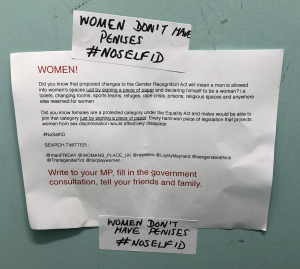 WOMEN DON'T HAVE
PENISES
#NOSELFID
WOMEN!
Did you know that proposed changes to the Gender Recognition Act will mean a man is allowed
into women's spaces just by signing a piece of paper and declaring himself to be a woman? i.e.
toilets, changing rooms, sports teams, refuges, rape crises, prisons, religious spaces and anywhere
else reserved for women
Did you know females are a protected category under the Equality Act and males would be able to
join that category just by signing a piece of paper. Every hard-won piece of legislation that protects
women from sex discrimination would effectively disappear.
#NoSelfID
SEARCH TWITTER:
@manFRIDAY @WOMANS_PLACE_UK
@fairplaywomen
Write to your MP, fill in the government
consultation, tell your friends and family.
WOMEN DON'T
HAVE PENISES
#NOSELFID